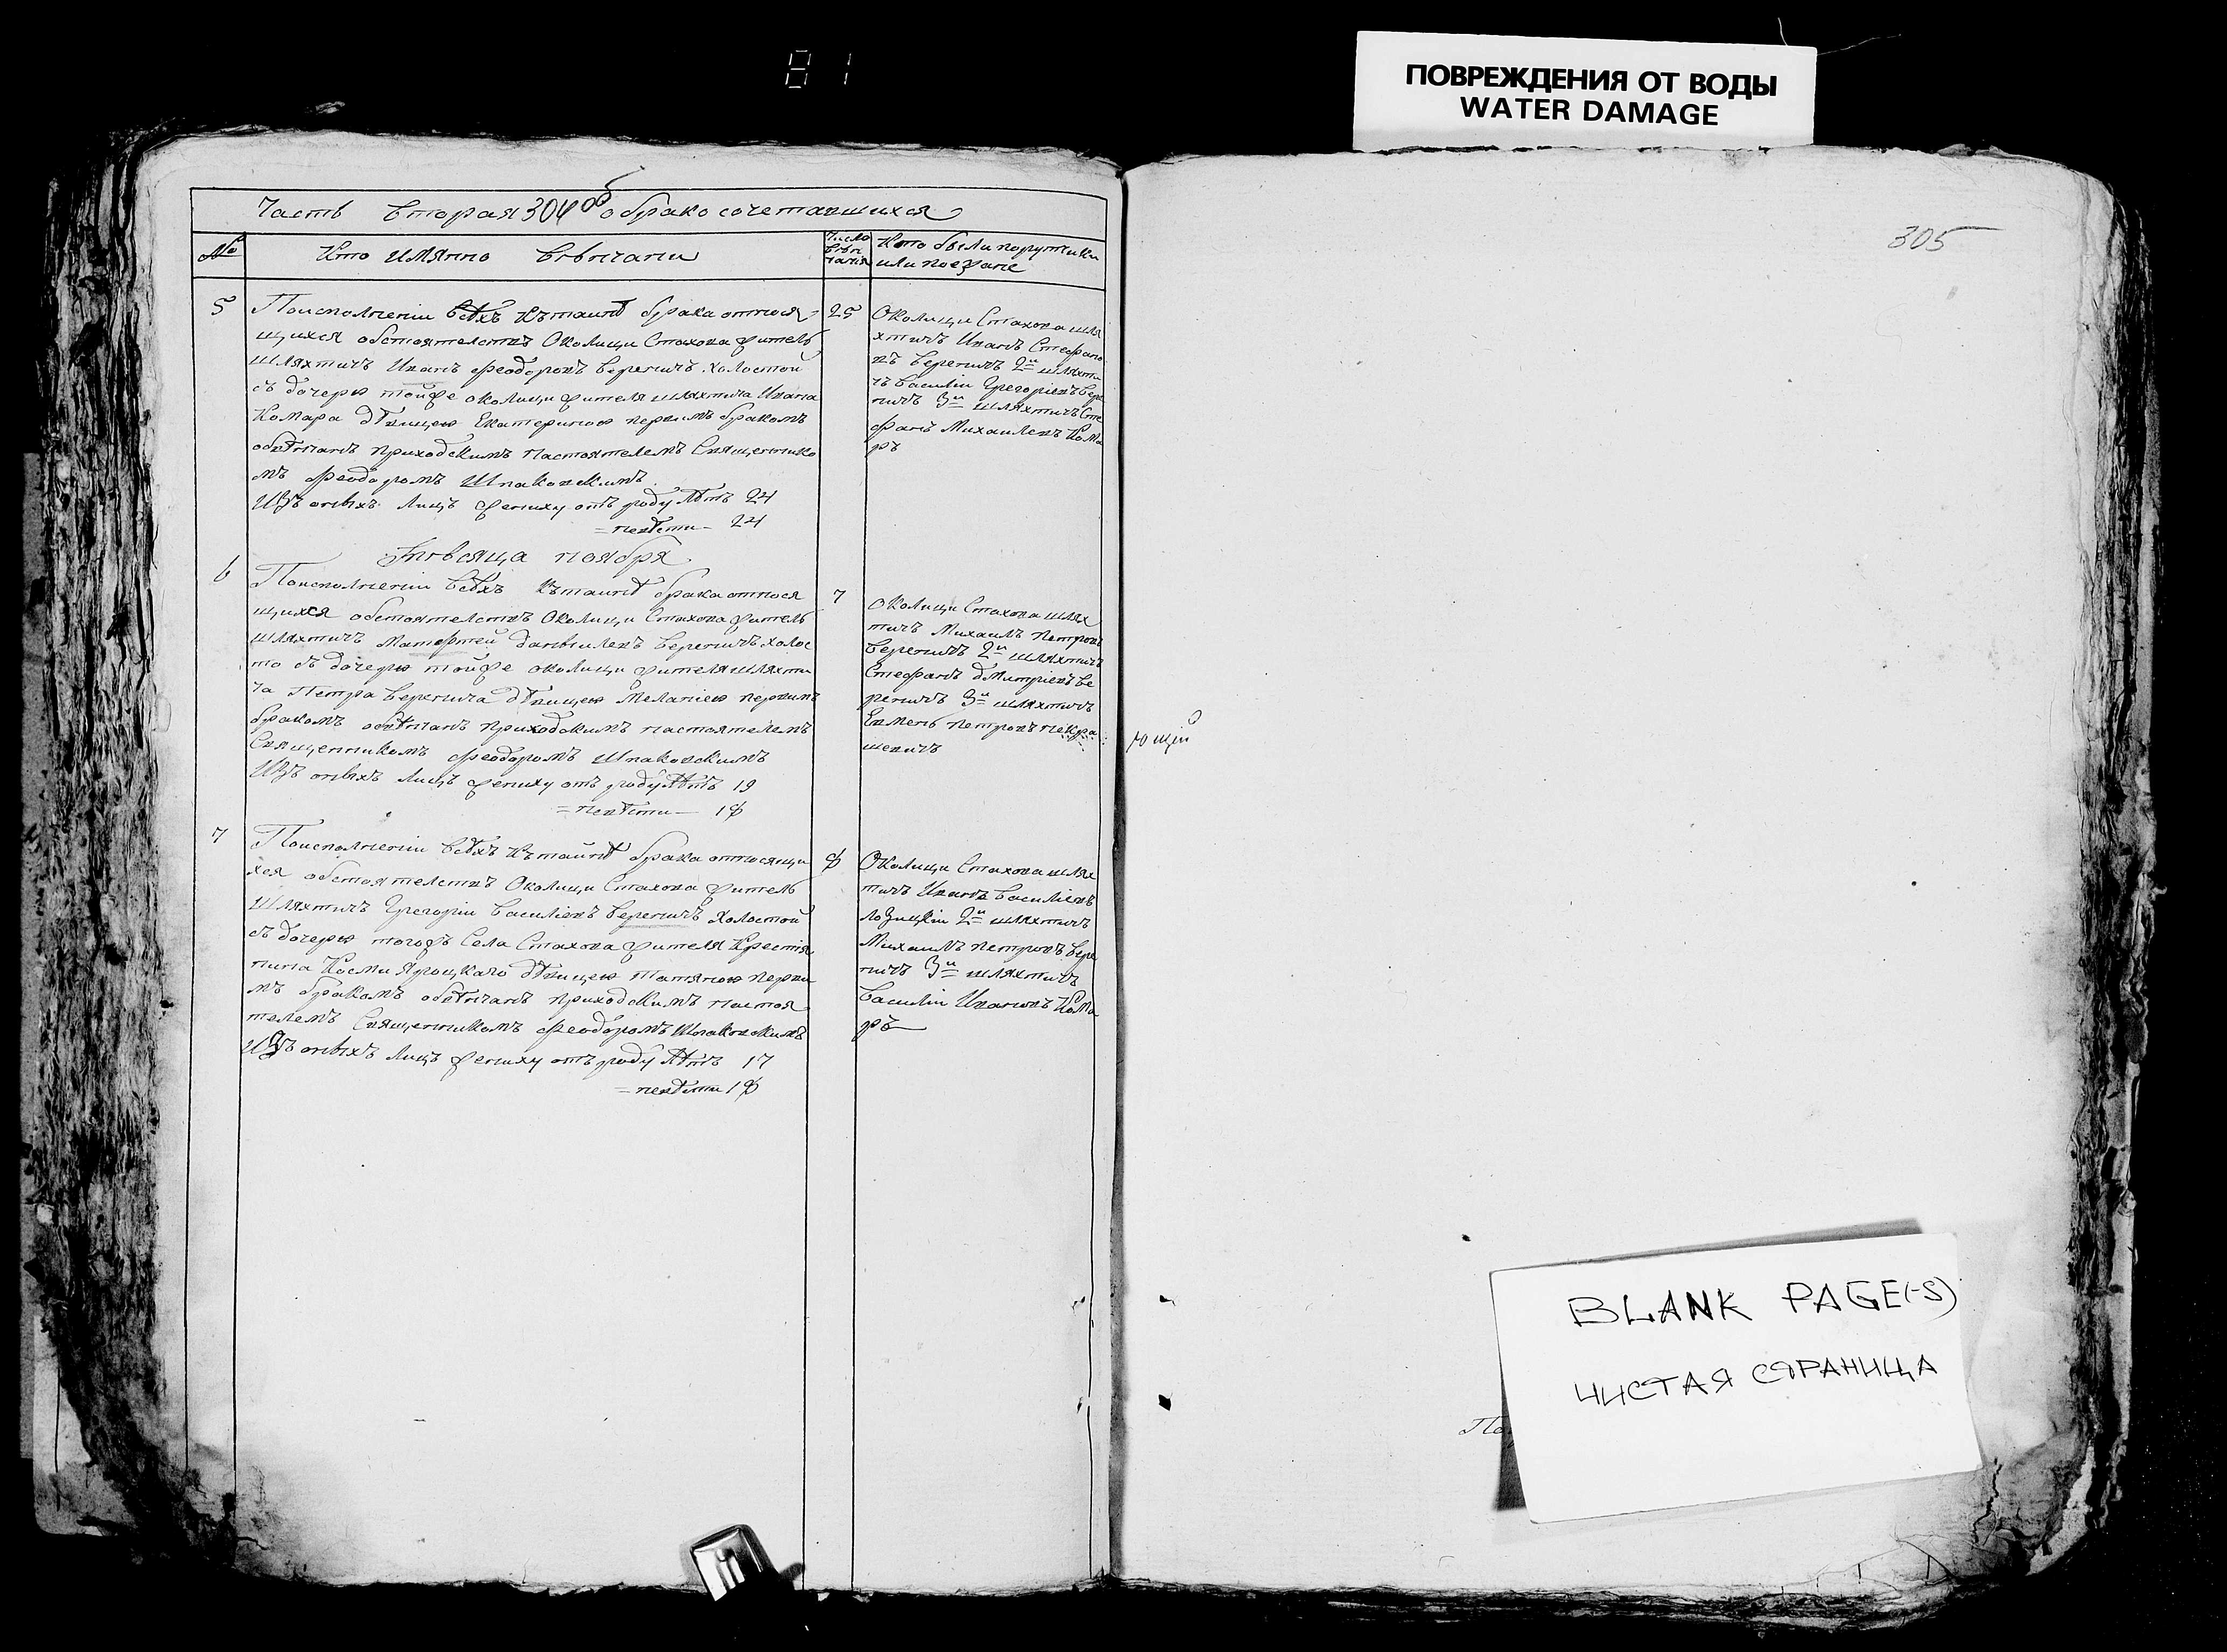 81
ПОВРЕЖДЕНИЯ ОТ ВОДЫ
WATER DAMAGE
Часть вторая 304 об о брако сочетавшихся
№
Кто имянно венчани
Число венчания
Кто были поручники
или поезжане
5
Поисполнении всѣхъ къ таинѣ брака относя-
щихся обстоятелствъ Околици Стахова житель
шляхтичъ Иванъ Феодоровъ Вереничъ холостой
съ дочерю тойже околици жителя шляхтича Ивана
Комара дѣвицею Екатериною первимъ бракомъ
обвѣнчанъ приходскимъ настоятелемъ Священнико
мъ Феодоромъ Шпаковскимъ
Изъ онихъ лицъ жениху отъ роду лѣтъ 24
= невѣсти — 24
25
Околици Стахова шля
хтичъ Иванъ Стефано
въ Вереничъ 2й шляхти
чъ Василій Григоріевъ Вере
ничъ 3й шляхтичъ Сте
фанъ Михаилевъ Кома
ръ
Мѣсяца ноября
6
Поисполнении всѣхъ къ таинѣ брака относя
щихся обстоятелствъ Околици Стахова житель
шляхтичъ Матфтей Даниилевъ Вереничъ холос
то съ дочерю тойже околици жителя шляхти
ча Петра Веренича дѣвицею Меланіею первимъ
бракомъ обвѣнчанъ приходскимъ настоятелемъ
Священникомъ Феодоромъ Шпаковскимъ
Изъ онихъ лицъ жениху отъ роду лѣтъ 19
= невѣсти — 18
7
Околици Стахова шлях
тичъ Михаилъ Петровъ
Вереничъ 2й шляхтичъ
Стефанъ Дмитріевъ Ве
реничъ 3й шляхтичъ
Евменъ Петровъ Некра
шевичъ
7
Поисполнении всѣхъ къ тайнѣ брака относящи
хся обстоятелствъ Околици Стахова житель
шляхтичъ Григорій Василіевъ Вереничъ холостой
съ дочерю тогожъ Села Стахова жителя Крестія
нина Косми Яроцкаго дѣвицею Татяною перви
мъ бракомъ обвѣнчанъ приходскимъ настоя
телемъ Священникомъ Феодоромъ Шпаковскимъ
Изъ онихъ лицъ жениху отъ роду лѣтъ 17
= невѣсти 18
8
Околици Стахова шлях
тичъ Иванъ Василіевъ
Лозицкій 2й шляхтичъ
Михаилъ Петровъ Вере
ничъ 3й шляхтичъ
Василій Ивановъ Кома
ръ
305
ющій
BLANK PAGE(-S)
ЧИСТАЯ СТРАНИЦА